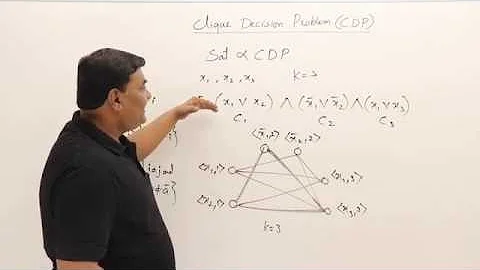 Clique Decision Problem (CDP)
Sat ∝ CDP
x₁, x₂, x₃ k=3
(x₁ ∨ x₂) ∧ (x̄₁ ∨ x̄₂) ∧ (x₁ ∨ x₃)
C₁ C₂ C₃
⟨x̄₁,2⟩ ⟨x̄₂,2⟩
⟨x₁,1⟩ ⟨x₁,3⟩
⟨x₂,1⟩ ⟨x₃,3⟩
k=3